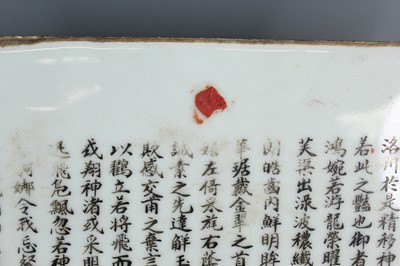 洛川於是精移神
若此之豔也御者
鴻婉若游龍榮曜
芙渠出淥波穠纖
朗皓齒內鮮明眸
華琚戴金翠之首
左倚采旄右蔭
誠素之先達解玉
欺感交甫之棄言
以鶴立若將飛而
或翔神渚或采明
迅飛鳧飄忽若神
婀娜令我忘餐